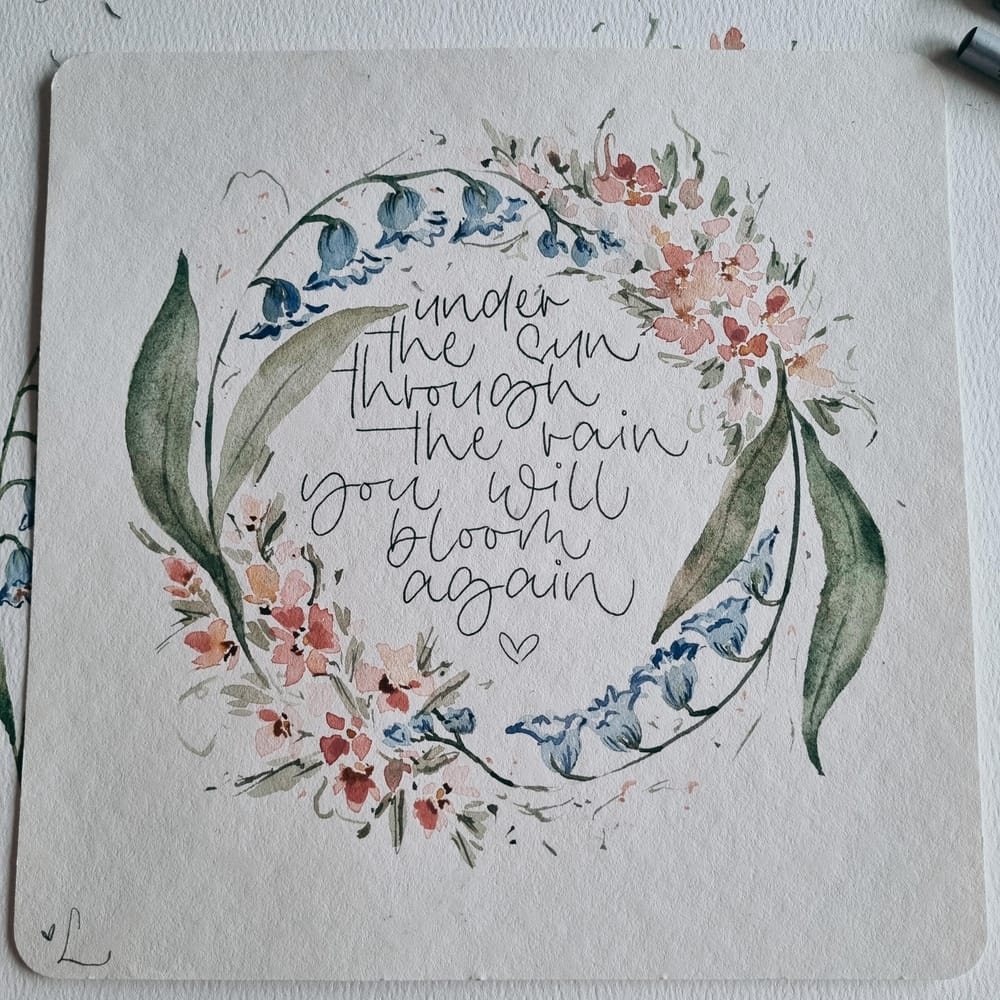 under
the sun
through
the rain
you will
bloom
again
L